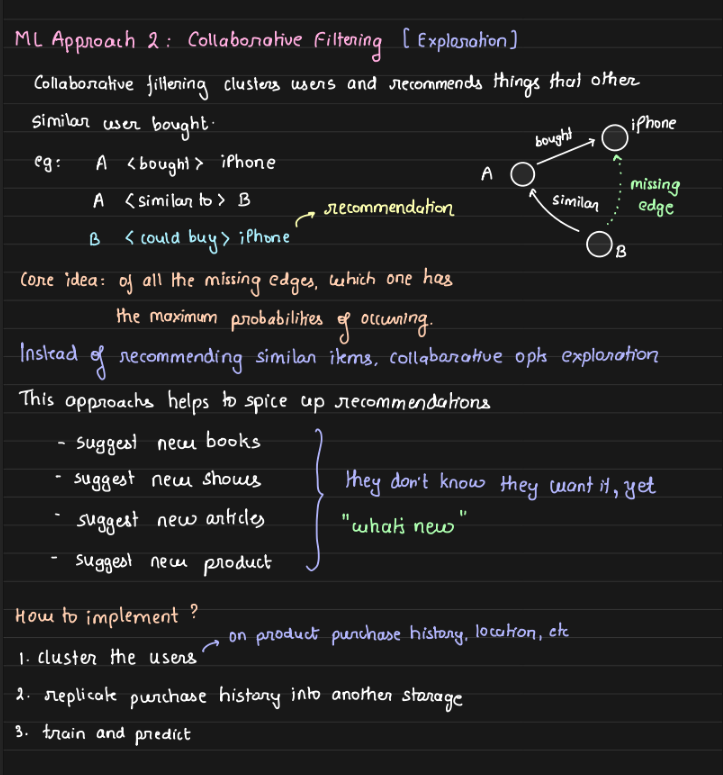 ML Approach 2: Collaborative Filtering [Exploration]
Collaborative filtering clusters users and recommends things that other
similar user bought.
eg: A <bought> iPhone
A <similar to> B
recommendation
B <could buy> iPhone
iPhone
bought
A
similar
missing
edge
B
Core idea: of all the missing edges, which one has
the maximum probabilities of occuring.
Instead of recommending similar items, collabarative opts exploration
This approachs helps to spice up recommendations
- suggest new books
- suggest new shows
- suggest new articles
- suggest new product
they don't know they want it, yet
"what's new"
How to implement?
on product purchase history, location, etc
1. cluster the users
2. replicate purchase history into another storage
3. train and predict